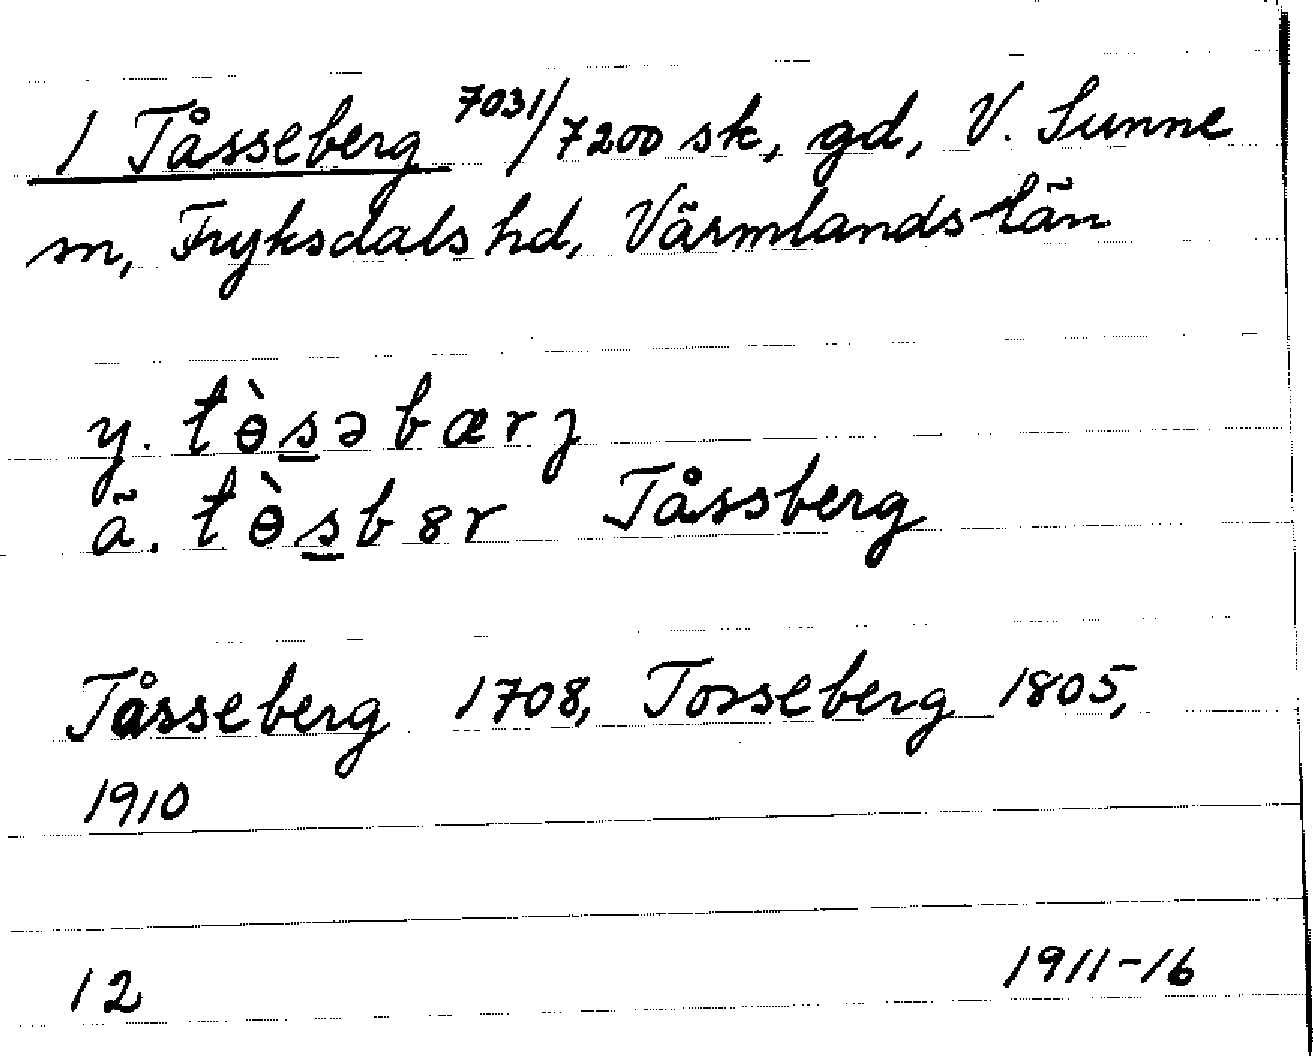 1 Tåsseberg 7031/7200 sk, gd, V. Sunne
sn, Fryksdals hd, Värmlands län
y. tɵ̀səbærȷ
ä. tɵ̀sb8r Tåssberg
Tåsseberg 1708, Tosseberg 1805,
1910
12 1911-16